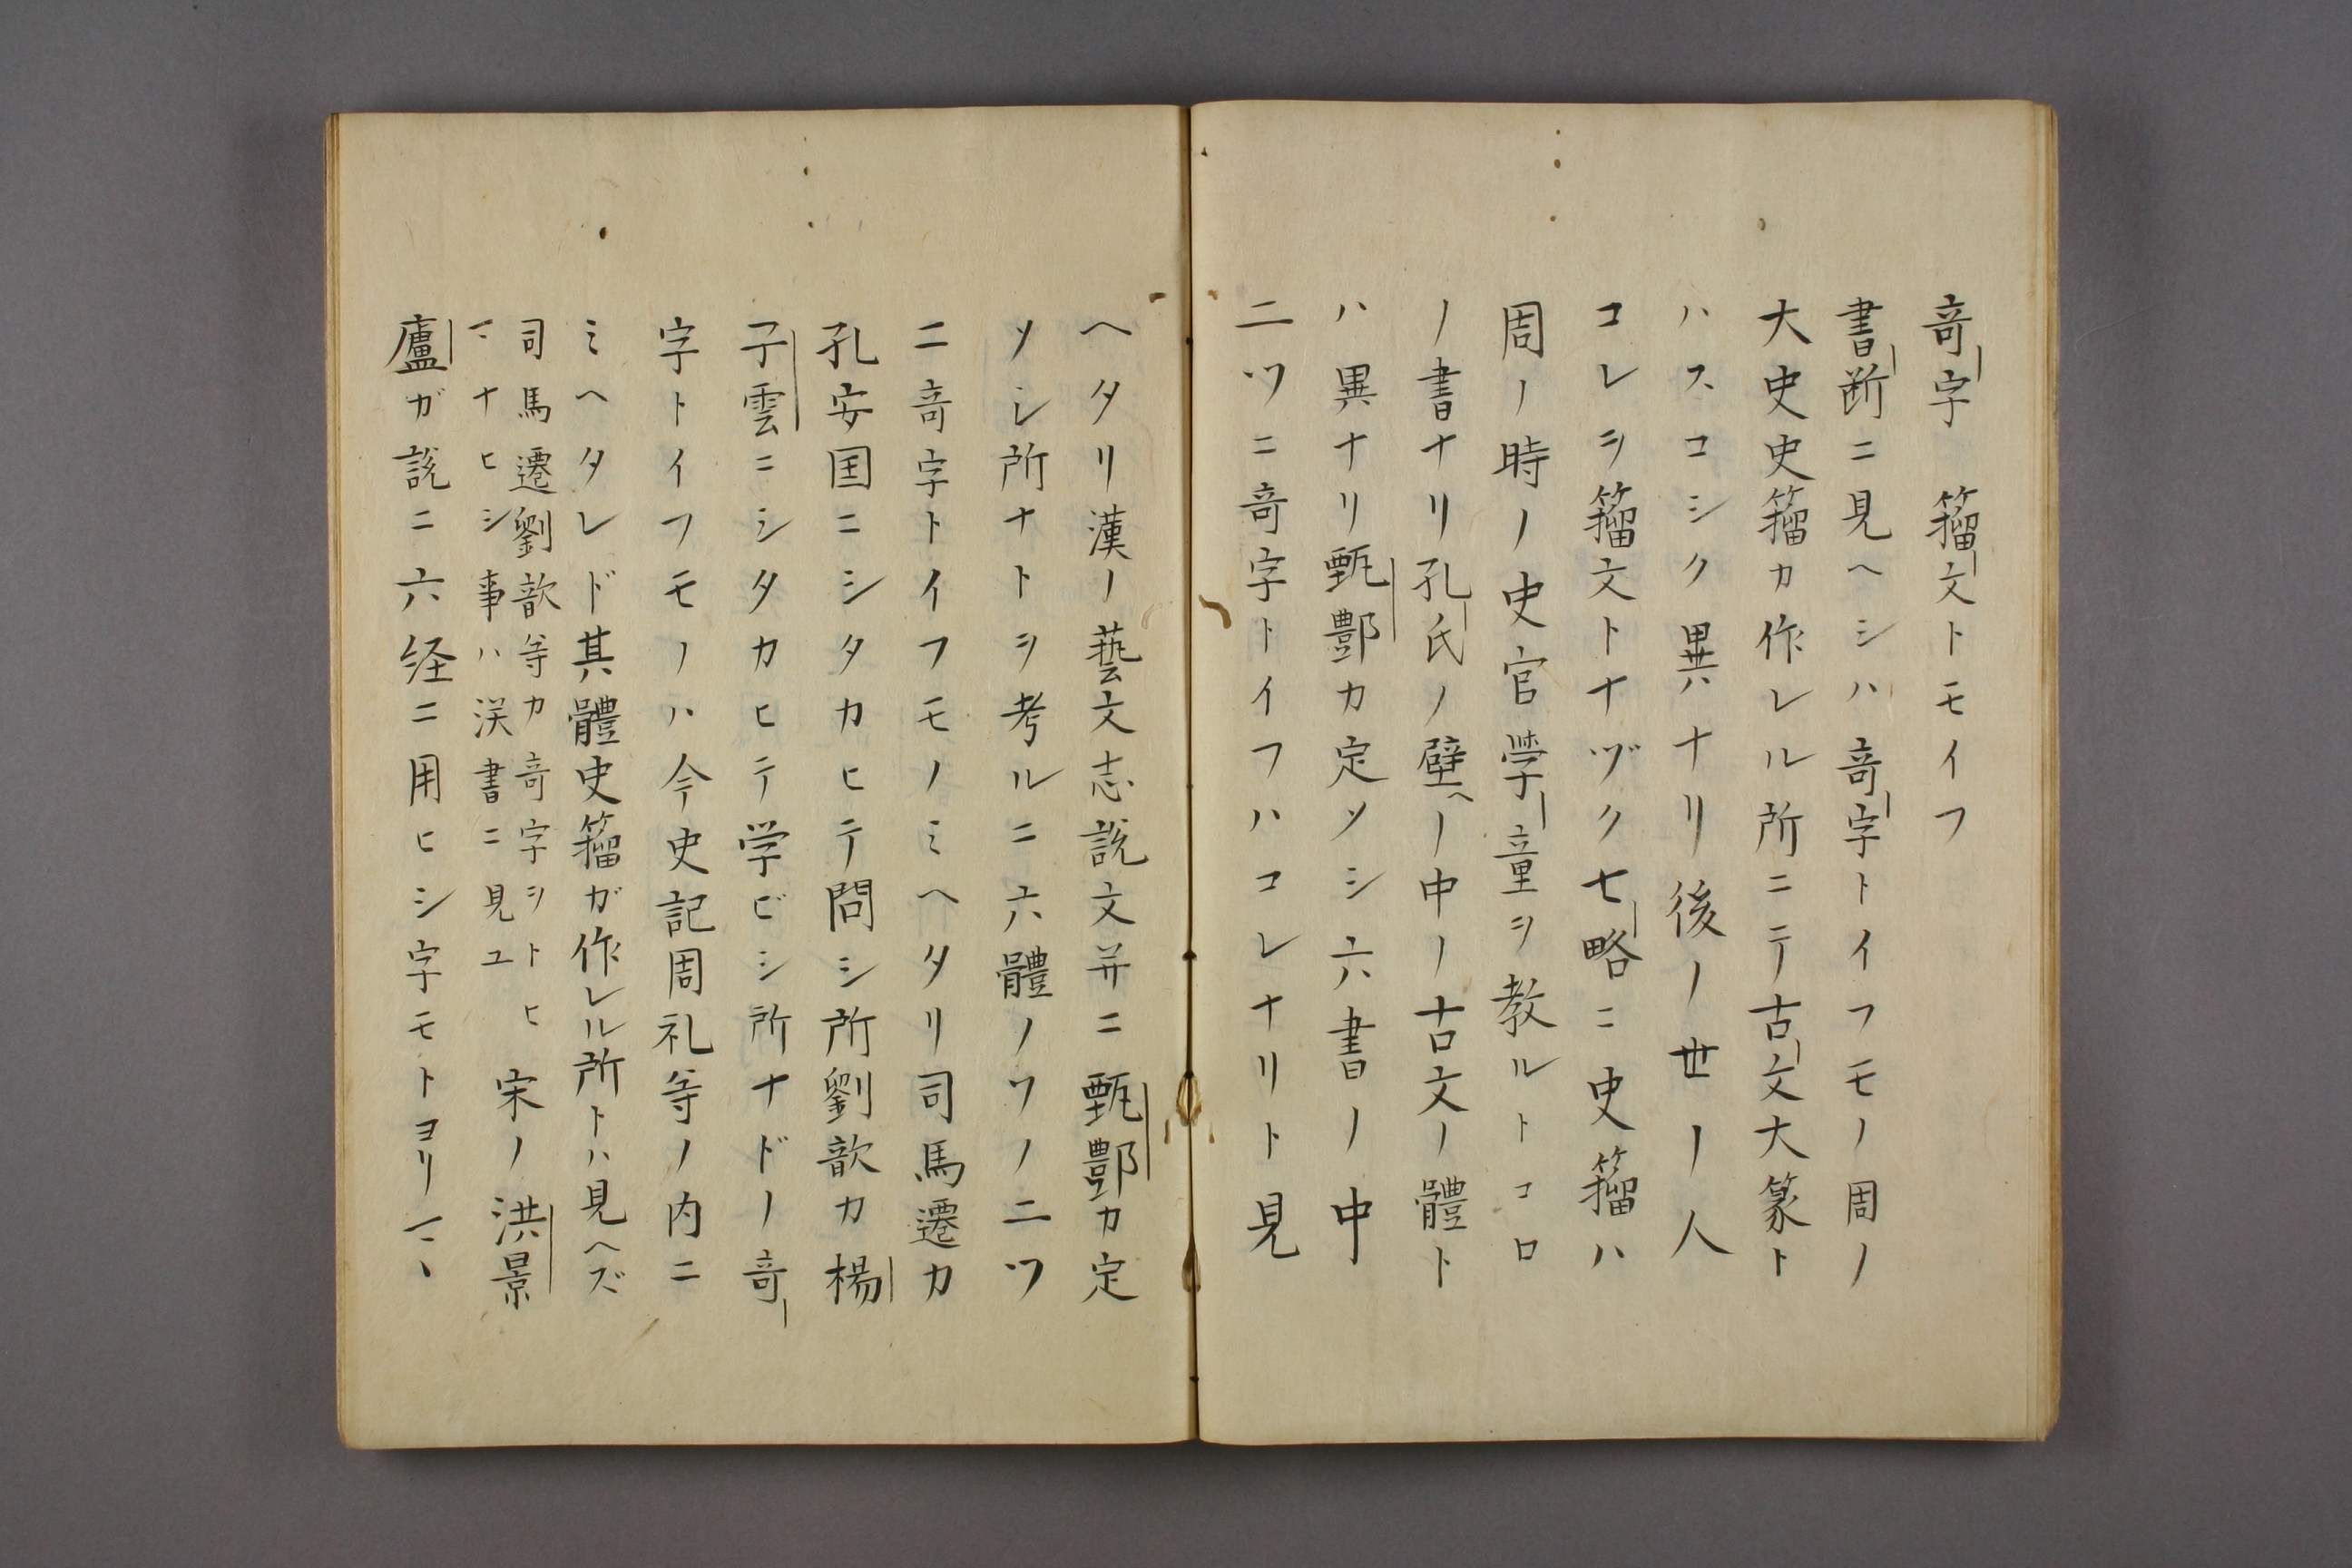 竒字　籀文トモイフ
書断ニ見ヘシハ竒字トイフモノ周ノ
大史史籀カ作レル所ニテ古文大篆ト
ハスコシク異ナリ後ノ世ノ人
コレヲ籀文トナヅク七略ニ史籀ハ
周ノ時ノ史官学童ヲ教ルトコロ
ノ書ナリ孔氏ノ壁ヘノ中ノ古文ノ體ト
ハ異ナリ甄酆カ定メシ六書ノ中
二ツニ竒字トイフハコレナリト見
ヘタリ漢ノ藝文志説文并ニ甄酆カ定
メシ所ナトヲ考ルニ六體ノワノ二ツ
ニ竒字トイフモノミヘタリ司馬遷カ
孔安国ニシタカヒテ問シ所劉歆カ楊
子雲ニシタカヒテ学ビシ所ナドノ竒
字トイフモノハ今史記周礼等ノ内ニ
ミヘタレド其體史籀ガ作レル所トハ見ヘズ
司馬遷劉歆等カ竒字ヲトヒ
マナヒシ事ハ漢書ニ見ユ
宋ノ洪景
盧ガ説ニ六経ニ用ヒシ字モトヨリマヽ